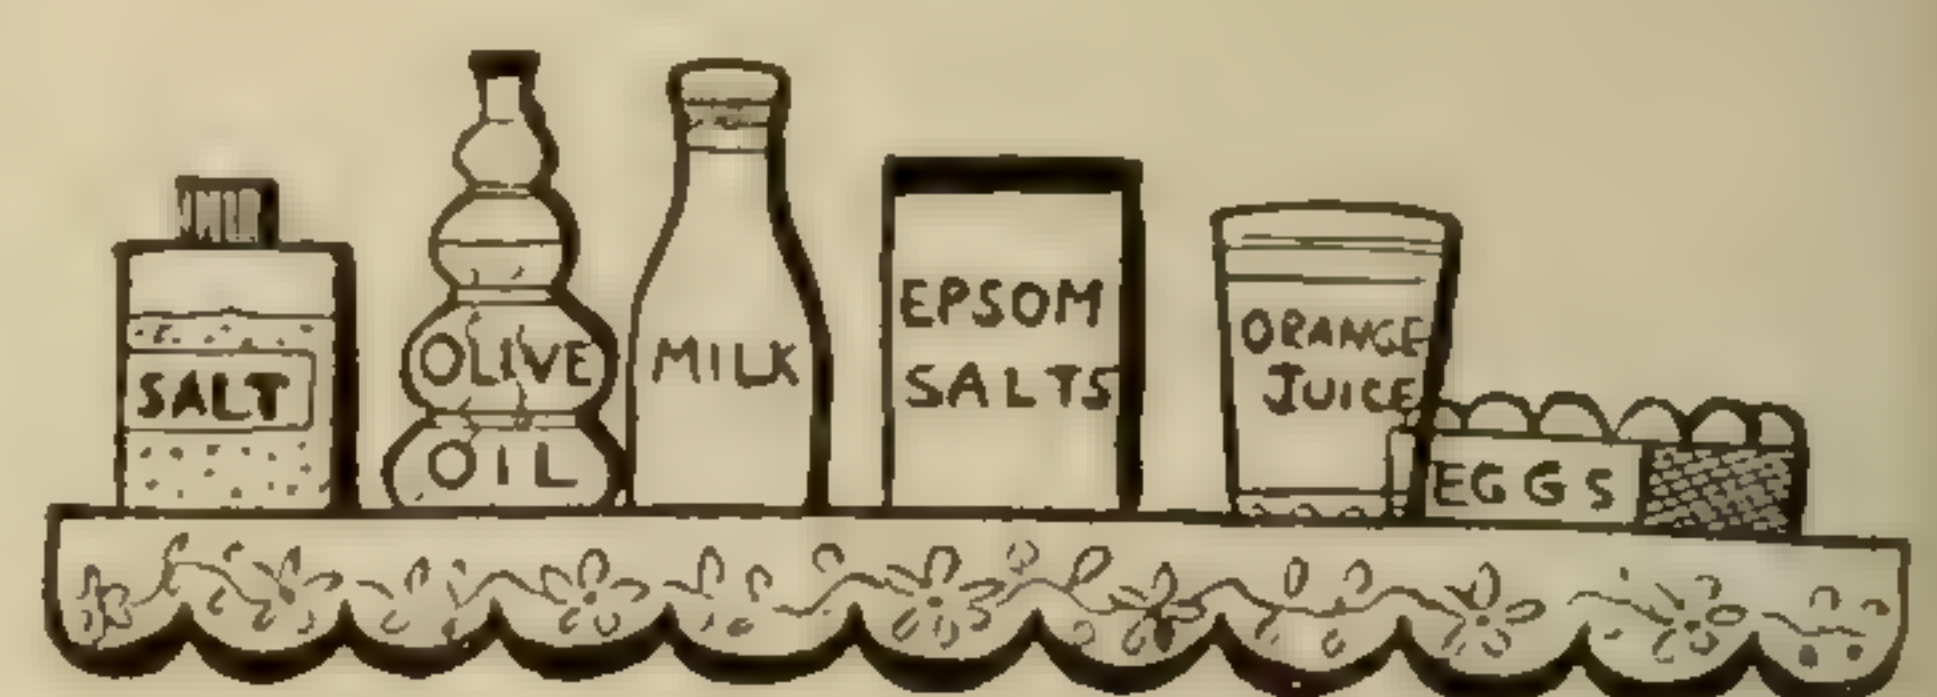 SALT
OLIVE
OIL
MILK
EPSOM
SALTS
ORANGE
JUICE
EGGS